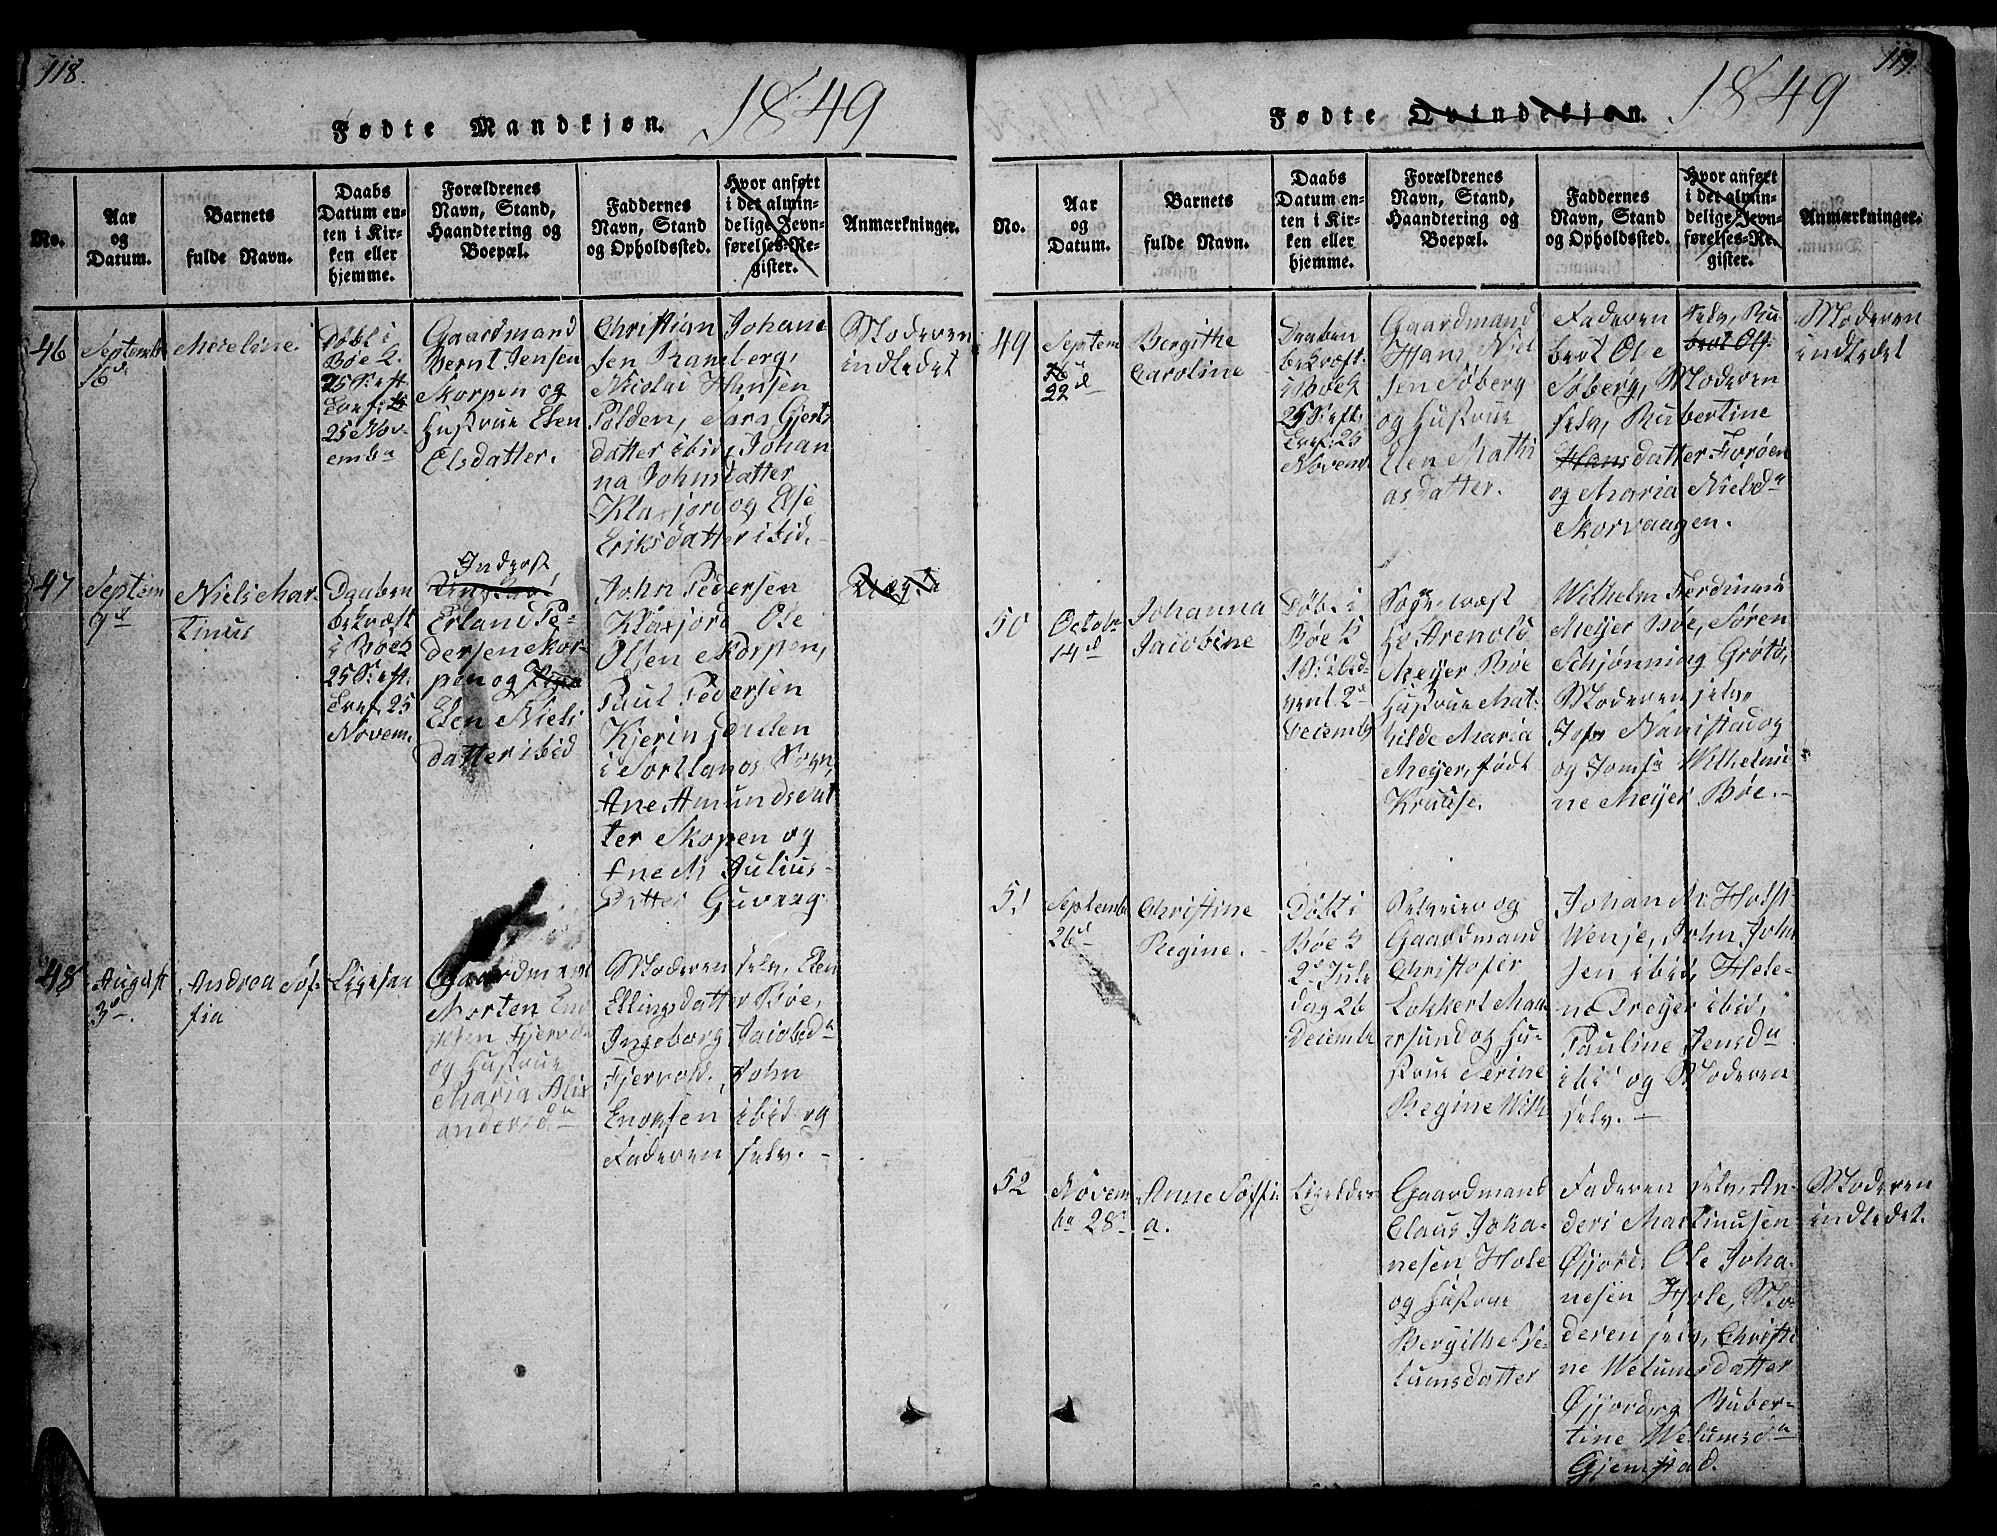 118.
Fødte Mandkjøn.
1849
No.
Aar
og
Datum.
Barnets
fulde Navn.
Daabs
Datum en-
ten i Kir-
ken eller
hjemme.
Forældrenes
Navn, Stand,
Haandtering og
Boepæl.
Faddernes
Navn, Stand
og Opholdssted.
Hvor anført
i det almin-
delige Jevn-
førelses-Re-
gister.
Anmærkninger.
46
Septemb
16d
Meieline
Døbt i
Bøe K.
25 S. eft
Tref.
25 Nov-
emb
Gaardmand
Bernt Jensen
Skorpen og
Hustrue Elen
Elsdatter.
Christian Johan-
sen Ramberg,
Nicolai Hansen
Polden, Sara Gjert-
datter ibid, Johan
na Johnsdatter
Klaxjord og Else
Eriksdatter ibid.
Moderen
indledet
47
Septem
9d
Niels Mar-
tinus
Daaben
bekræft
i Bøe K
25 S. eft.
Tref. 25
Novem.
Inderst
Erland Pe-
dersen Skor-
pen og
Elen Niels
datter ibid
John Pedersen
Klaxjord Ole
Olsen Skorpen,
Paul Pedersen
Kjeringfjorden
i Sortlands Sogn,
Ane Amundsdat
ter Skopen og
Julius-
Datter Guvaag
48
August
3d.
Andrea Søf-
fia
Ligesaa
Gaardmand
Morten En
Fjervold
og Hustrue
Maria Alex
andersd
Moderen selv, Elen
Ellingsdatter Bøe,
Ingeborg Jacobsd
Fjervold, John
Enoksen ibid og
Faderen selv. –
119.
Fødte Qvindekjøn.
1849
No.
Aar
og
Datum.
Barnets
fulde Navn.
Daabs
Datum en-
ten i Kir-
ken eller
hjemme.
Forældrenes
Navn, Stand,
Haandtering og
Boepæl.
Faddernes
Navn, Stand
og Opholdssted.
Hvor anført
i det almin-
delige Jevn-
førelses-Re-
gister.
Anmærkninger.
49
Septem
22d
Bergithe
Caroline
Daaben
bekræft.
i Bøe K
25 S. eft.
Tref. 25
Novem.
Gaardmand
Hans Niel
sen Søberg
og Hustrue
Elen Mathi
asdatter.
Faderen selv, Ru
bert Ole
Søberg, Moderen
selv, Rubertine
Hansdatter Forøen
og Maria Nielsd
Skorvaagen.
Moderen
indledet
50
Octob
14d
Johanna
Jacobine
Døbt i
Bøe K
1 S. i Ad-
vent 2d
Decemb
Sognepræst
Hr Arenold
Meyer Bøe
Hustrue Mat-
hilde Maria
Meyer, født
Krause.
Wilhelm Ferdinand
Meyer Bøe, Søren
Schjønning Grøtø,
Moderen selv,
Jofr Nanistad og
og Jomfr Wilhelmi
ne Meyer Bøe. –
51
Septemb
26d
Christine
Regine.
Døbt i
Bøe K
2d Jule
dag 26
Decemb
Selveier og
Gaardmand
Christofer
Lokkert Maa-
ersund og Hu-
strue Serine
Regine With
Johan M. Holst
Wenje, John John
sen ibid, Hele-
ne Dreyer ibid,
Pauline Jensd
ibid og Moderen
selv. –
52
Novem
b 28
Anne Søffi
a.
Ligeledes
Gaardmand
Claus Joha-
nesen Hole
og Hustrue
Bergithe We-
lumsdatter
Faderen selv, An-
ders Martinusen
Øjjord, Ole Joha-
nesen Hole, Mo-
deren selv, Christi
ne Welumsdatter
Øjjord og Ruber-
tine Welumsd
Gjemstad.
Moderen
indledet.